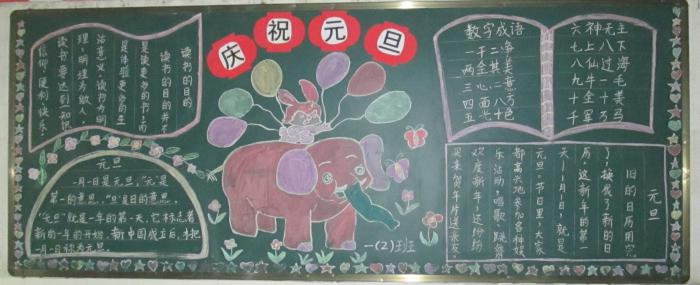 庆祝元旦
读书的目的
读书的目的并不
是读更多的书,而
是体验更多的生
活意义。读书为明
理,明理为做人。
读书要达到
信仰,便利快乐。
元旦
一月一日是元旦,"元"是
第一的意思,"旦"是日的意思。
"元旦"就是一年的第一天,它标志着
新的一年的开始。新中国成立后,才把
一月一日称为元旦。
一(2)班
数字成语
一干二净
两全其美
三心二意
四面八方
五光十色
六神无主
七上八下
八仙过海
九牛一毛
十全十美
千军万马
元旦
旧的日历用完
了,换成了新的日
历,这新年的第一
天一月一日,就是
元旦。节日里,大家
都高兴地参加各种娱
乐活动,唱歌、跳舞
欢度新年,还纷纷
买来贺年片送亲友。